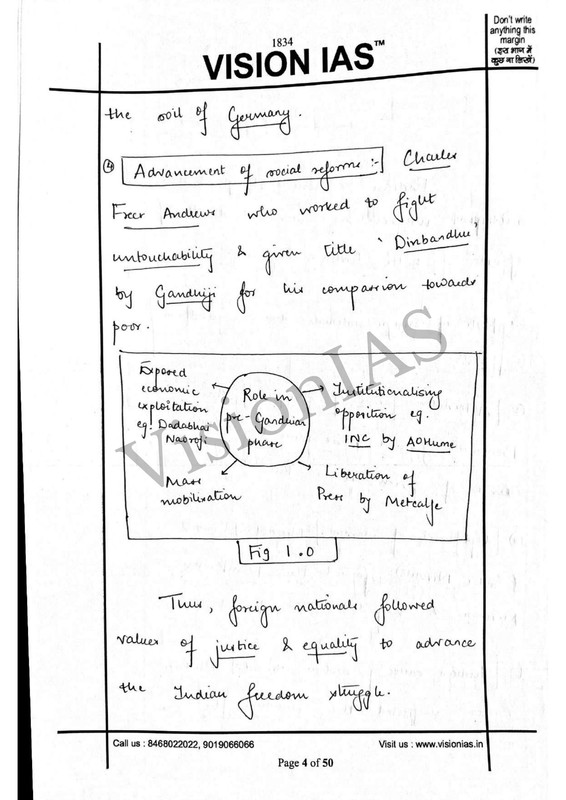 1834
VISION IAS™
Don't write
anything this
margin
(इस भाग में
कुछ ना लिखें)
the soil of Germany.
④ Advancement of social reforms :- Charles
Freer Andrews who worked to fight
untouchability & given title 'Dinbandhu'
by Gandhiji for his compassion towards
poor.
Exposed
economic
exploitation
eg: Dadabhai
Naoroji
Role in
pre-Gandhian
phase
Institutionalising
opposition eg.
INC by AOHume
Mass
mobilization
Liberation of
Press by Metcalfe
Fig 1.0
VisionIAS
Thus, foreign nationals followed
values of justice & equality to advance
the Indian freedom struggle.
Call us : 8468022022, 9019066066
Visit us : www.visionias.in
Page 4 of 50